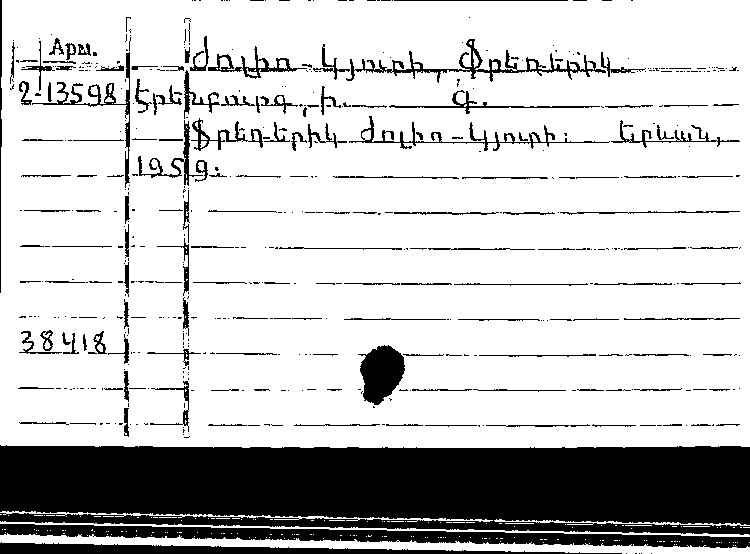 Арм. Ժոլիո-Կյուրի, Ֆրեդերիկ.
2-13598 Էրենբուրգ, Ի. Գ.
Ֆրեդերիկ Ժոլիո-Կյուրի: Երևան,
1959.
38418